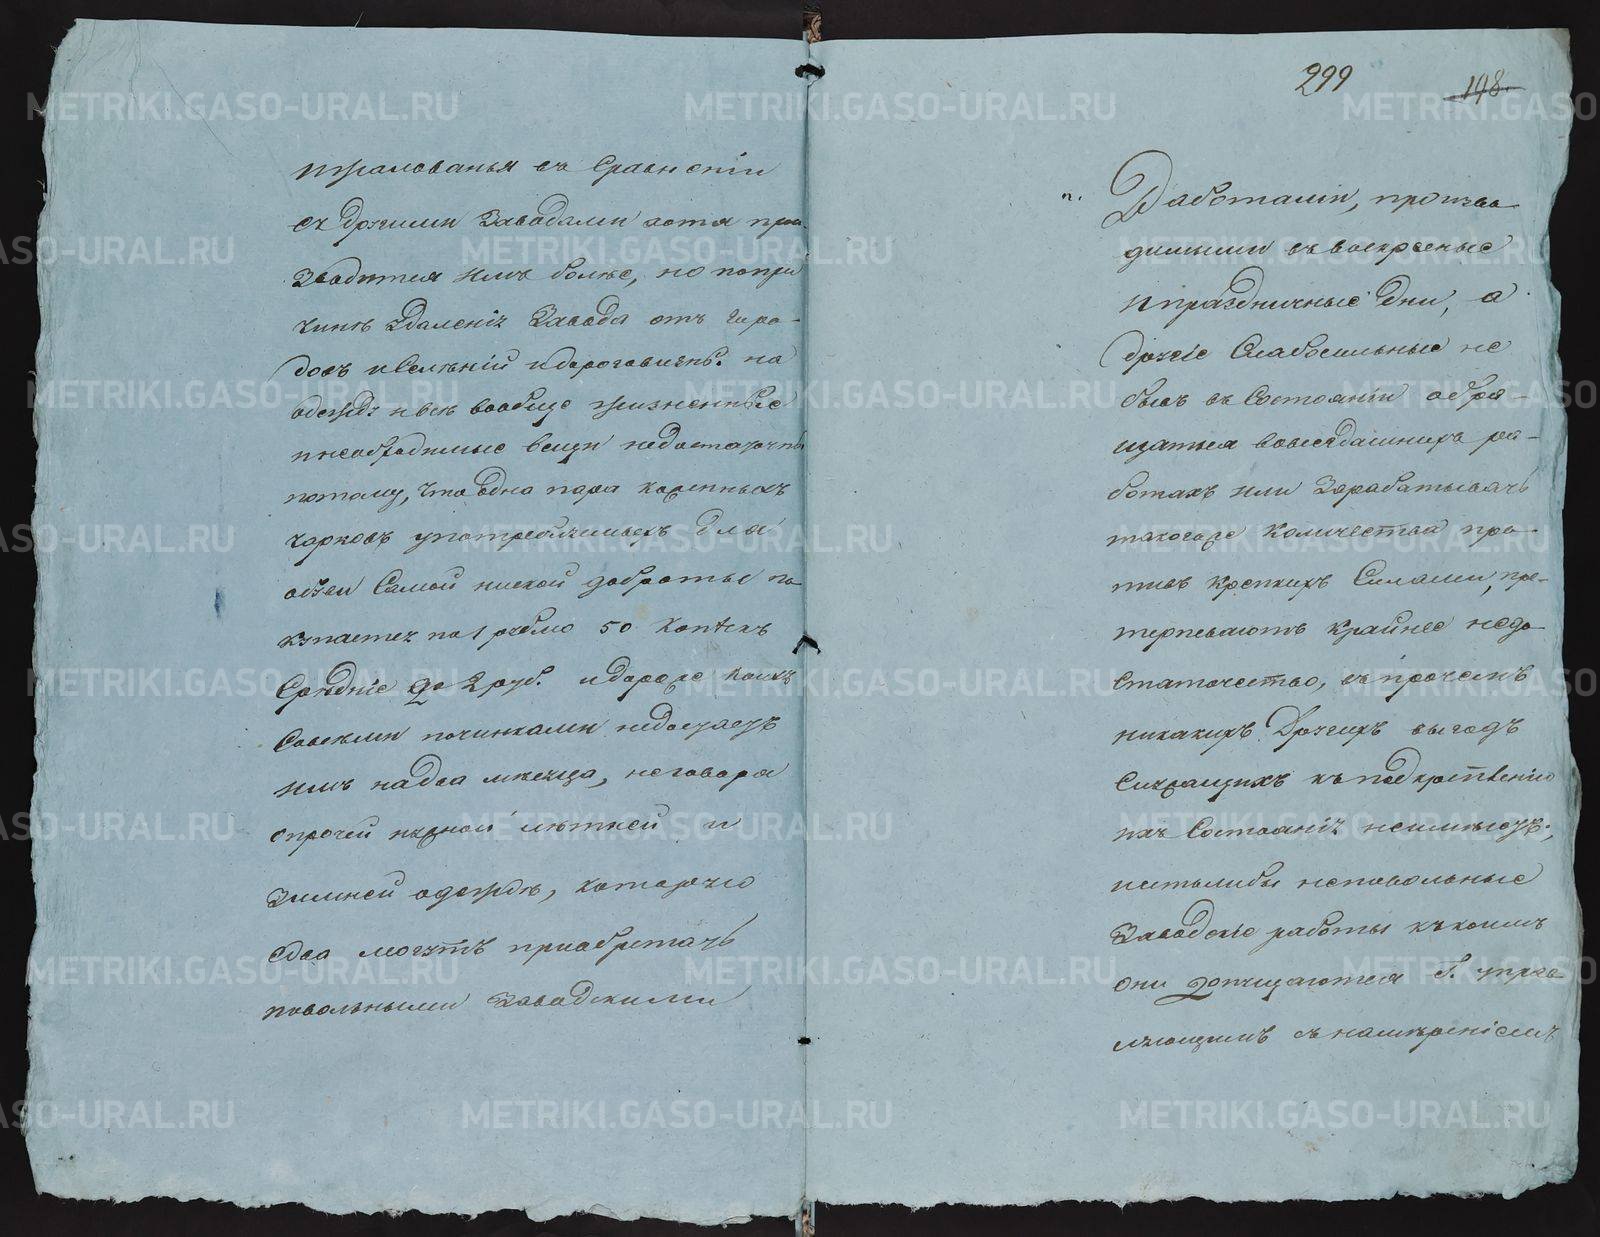 жалованья въ Сравненіи
съ Другими Заводами хотя про-
изводится имъ болѣе, но попри
чинѣ Удаленія Завода отъ Горо-
довъ и Селѣній идороговизнѣ на
одежду и всѣ вообще жизненные
инеобходимые вещи недостаточны
потому, что одна пара
чарковъ употребляемыхъ для
обуви Самой ниской доброты по
купается по 1 рублю 50 Копѣекъ
Среднiе до 2 руб. идороже коихъ
Совсѣми починками недостаетъ
имъ надва мѣсяца, неговоря
опрочей нужной лѣтней и
Зимней одеждѣ, которую
едва могутъ приобретать
повольными Заводскими
299 148
п. Работами, произво-
димыми въ воскресные
и праздничные дни, а
другіе Слабосильные не
бывъ въ Состоянiи обра-
щаться вовсегдашнихъ ра-
ботахъ или Зарабатывать
такогоже Количества про-
тивъ крепкихъ Силами, пре-
терпеваютъ крайнее недо-
статочество, въ прочемъ
никакихъ Другихъ выгодъ
Служащихъ къ подкрепленiю
ихъ Состоянiя неимѣютъ,
естьлибы неповольные
Заводскіе работы къ коимъ
они допущаются Г. управ-
ляющимъ съ намѣренiемъ